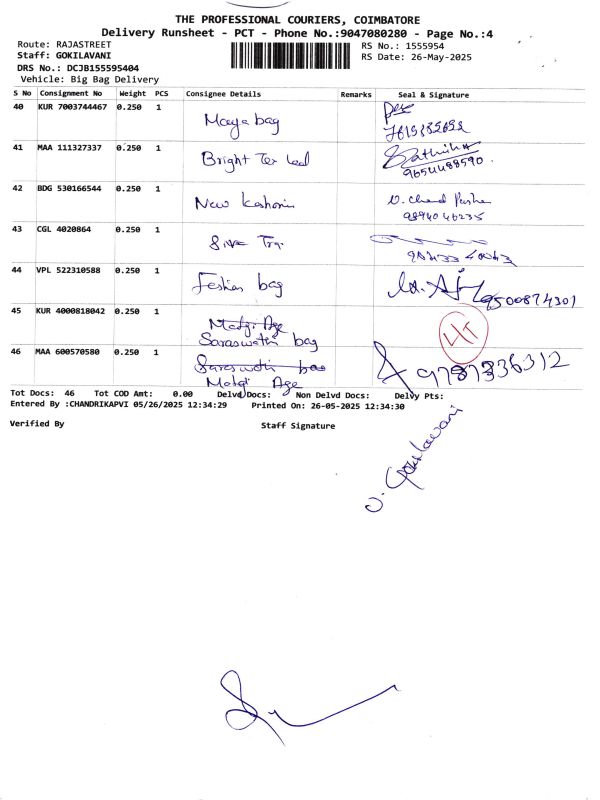 THE PROFESSIONAL COURIERS, COIMBATORE
Delivery Runsheet - PCT - Phone No.:9047080280 - Page No.:4
Route: RAJASTREET
Staff: GOKILAVANI
DRS No.: DCJB155595404
Vehicle: Big Bag Delivery
RS No.: 1555954
RS Date: 26-May-2025
S No Consignment No Weight PCS Consignee Details Remarks Seal & Signature
40 KUR 7003744467 0.250 1 Maya bag
41 MAA 111327337 0.250 1 Bright Tex Led Sathiska
9654488590
42 BDG 530166544 0.250 1 New Kashmir
9894046235
43 CGL 4020864 0.250 1
44 VPL 522310588 0.250 1 Feshion bag 9500874301
45 KUR 4000818042 0.250 1 Malgi Age
Saraswathi bag
46 MAA 600570580 0.250 1 Saraswathi bag 9787336312
Malgi Age
Tot Docs: 46 Tot COD Amt: 0.00 Delvd Docs: Non Delvd Docs: Delvy Pts:
Entered By :CHANDRIKAPVI 05/26/2025 12:34:29 Printed On: 26-05-2025 12:34:30
Verified By Staff Signature
J. Gokilavani